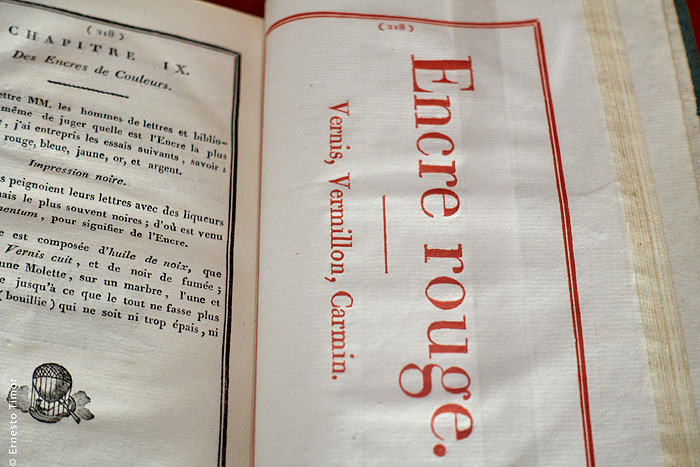 ( 218 )
CHAPITRE IX.
Des Encres de Couleurs.
ettre MM. les hommes de lettres et biblio-
même de juger quelle est l'Encre la plus
, j'ai entrepris les essais suivants, savoir :
rouge, bleue, jaune, or, et argent.
Impression noire.
s peignoient leurs lettres avec des liqueurs
ais le plus souvent noires ; d'où est venu
mentum, pour signifier de l'Encre.
e est composée d'huile de noix, que
Vernis cuit, et de noir de fumée ;
une Molette, sur un marbre, l'une et
e jusqu'à ce que le tout ne fasse plus
(bouillie) qui ne soit ni trop épais, ni
( 218 )
Encre rouge.
Vernis, Vermillon, Carmin.
© Ernesto Timor